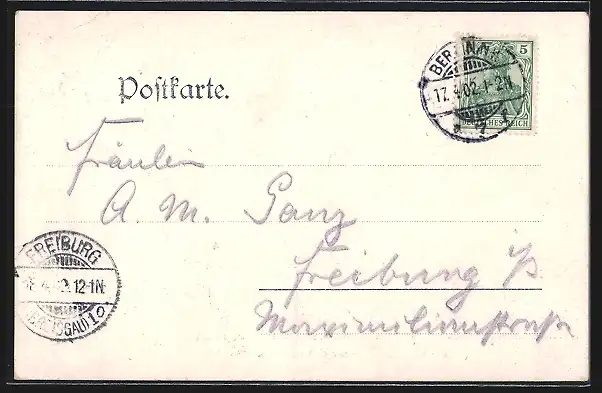 Postkarte.
BERLIN.N.
17.4.02.1-2N.
5
DEUTSCHES REICH
Fräulein
A. M. Ganz
Freiburg i/B
Maximilianstraße
FREIBURG
12-1N.
(BREISGAU) 1